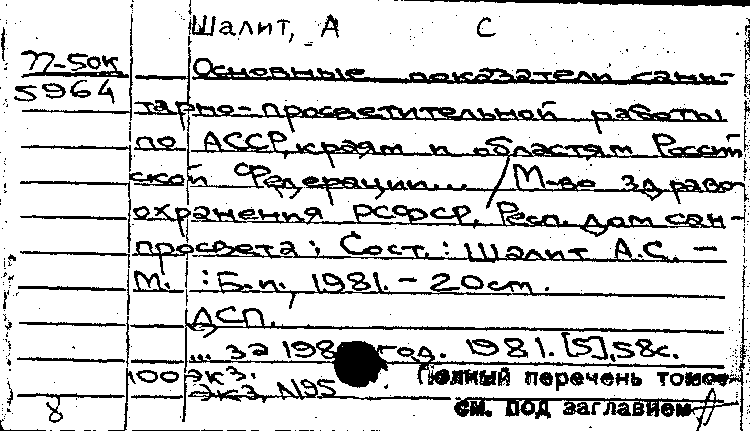 Шалит, А С
П-50к
5964
Основные показатели сани-
тарно-просветительной работы
по АССР, краям и областям Россий
ской Федерации... / М-во здраво
охранения РСФСР, Респ. дом сан-
просвета; Сост.: Шалит А.С. –
М. : Б.и., 1981. – 20см.
ДСП.
... за 198 год. 1981. [5], 58с.
100 экз.
экз. №95. Полный перечень томов
см. под заглавием
8